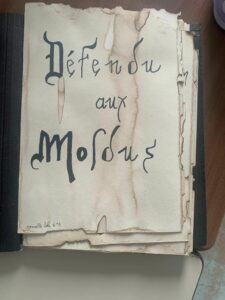 Défendu
aux
Moldus